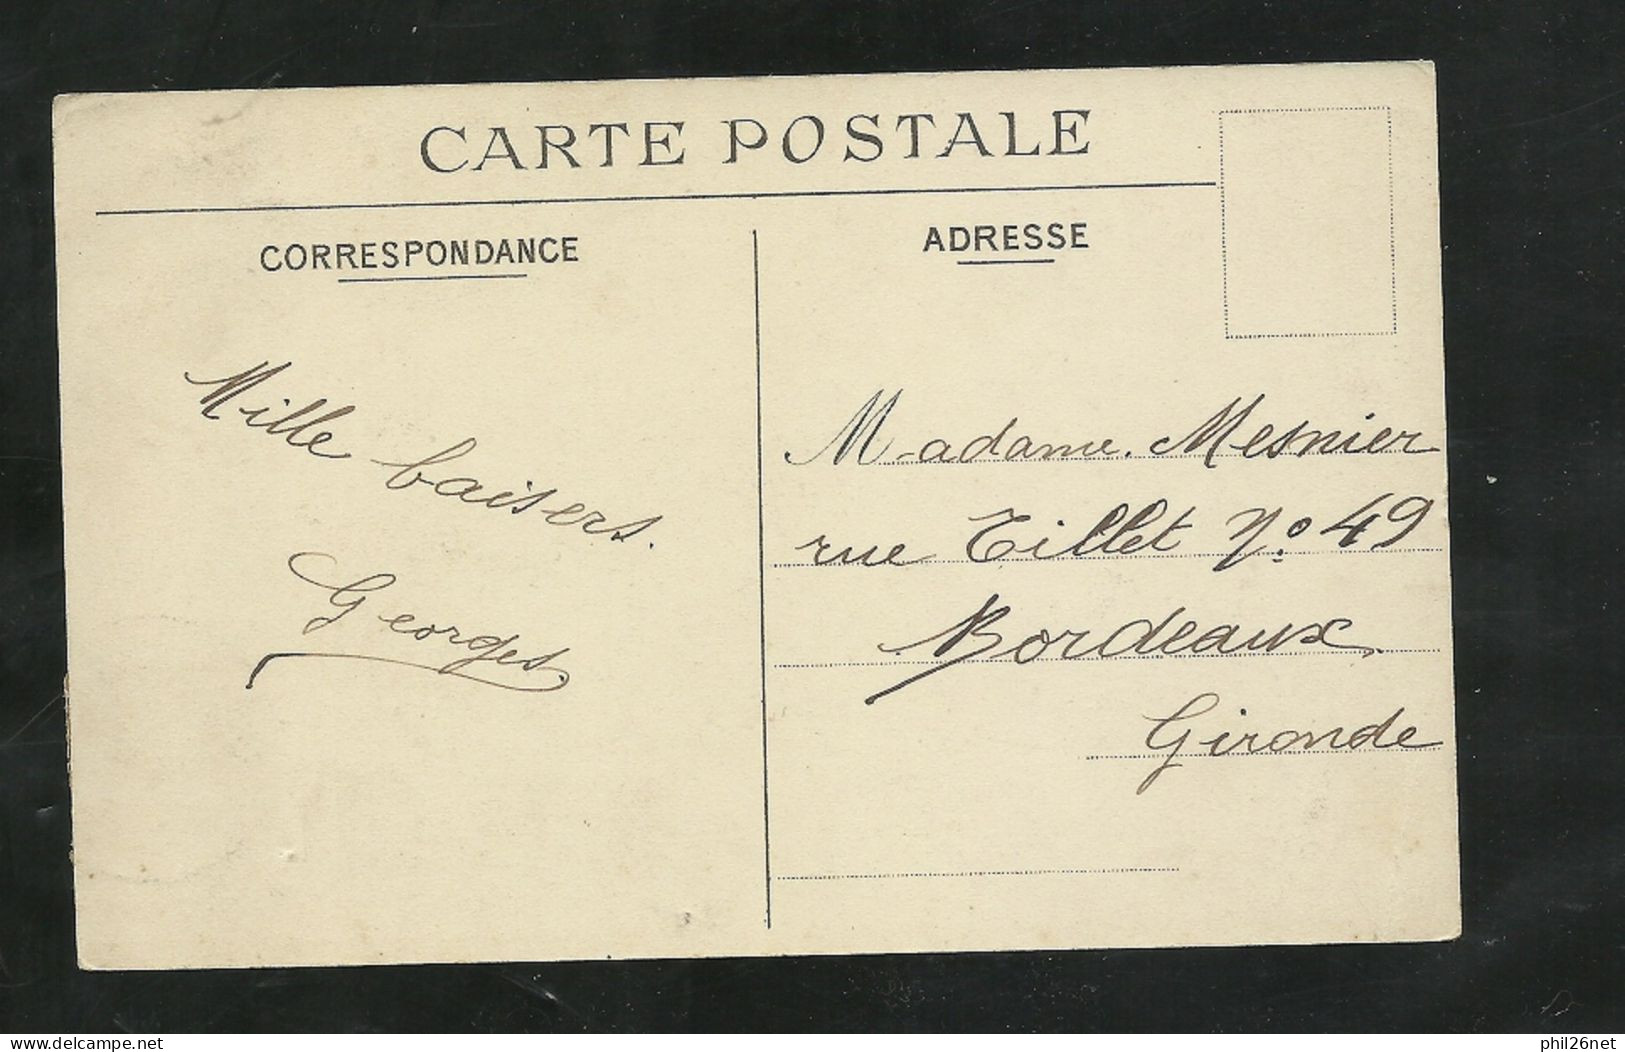 CARTE POSTALE
CORRESPONDANCE
ADRESSE
Mille baisers.
Georges.
Madame. Mesnier
rue Tillet No 49
Bordeaux.
Gironde
delcampe.net
phil26net